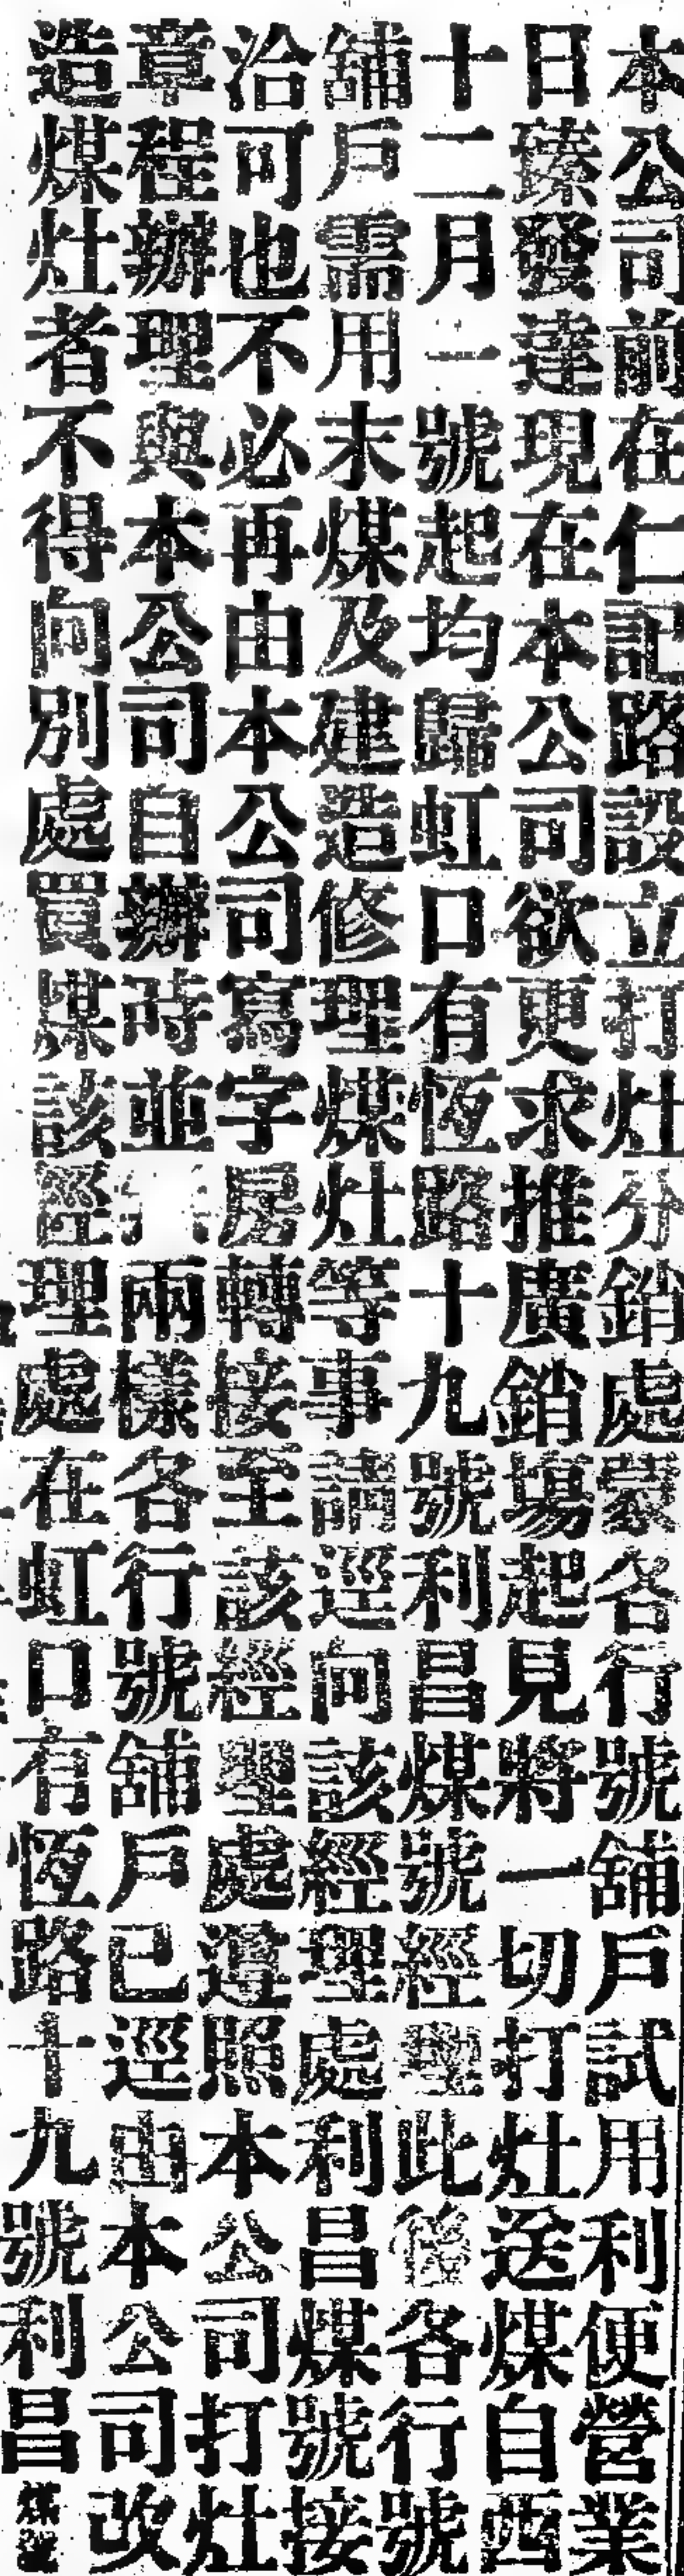 本公司前在仁記路設立打灶分銷處蒙各行號舖戶試用利便營業
日臻發達現在本公司欲更求推廣銷塲起見將一切打灶送煤自西
十二月一號起均歸虹口有恆路十九號利昌煤號經理此後各行號
舖戶需用末煤及建造修理煤灶等事請逕向該經理處利昌煤號接
洽可也不必再由本公司寫字房轉接至該經理處遵照本公司打灶
章程辦理與本公司自辦時並兩樣各行號舖戶已逕由本公司改
造煤灶者不得向別處買煤該經理處在虹口有恆路十九號利昌煤號